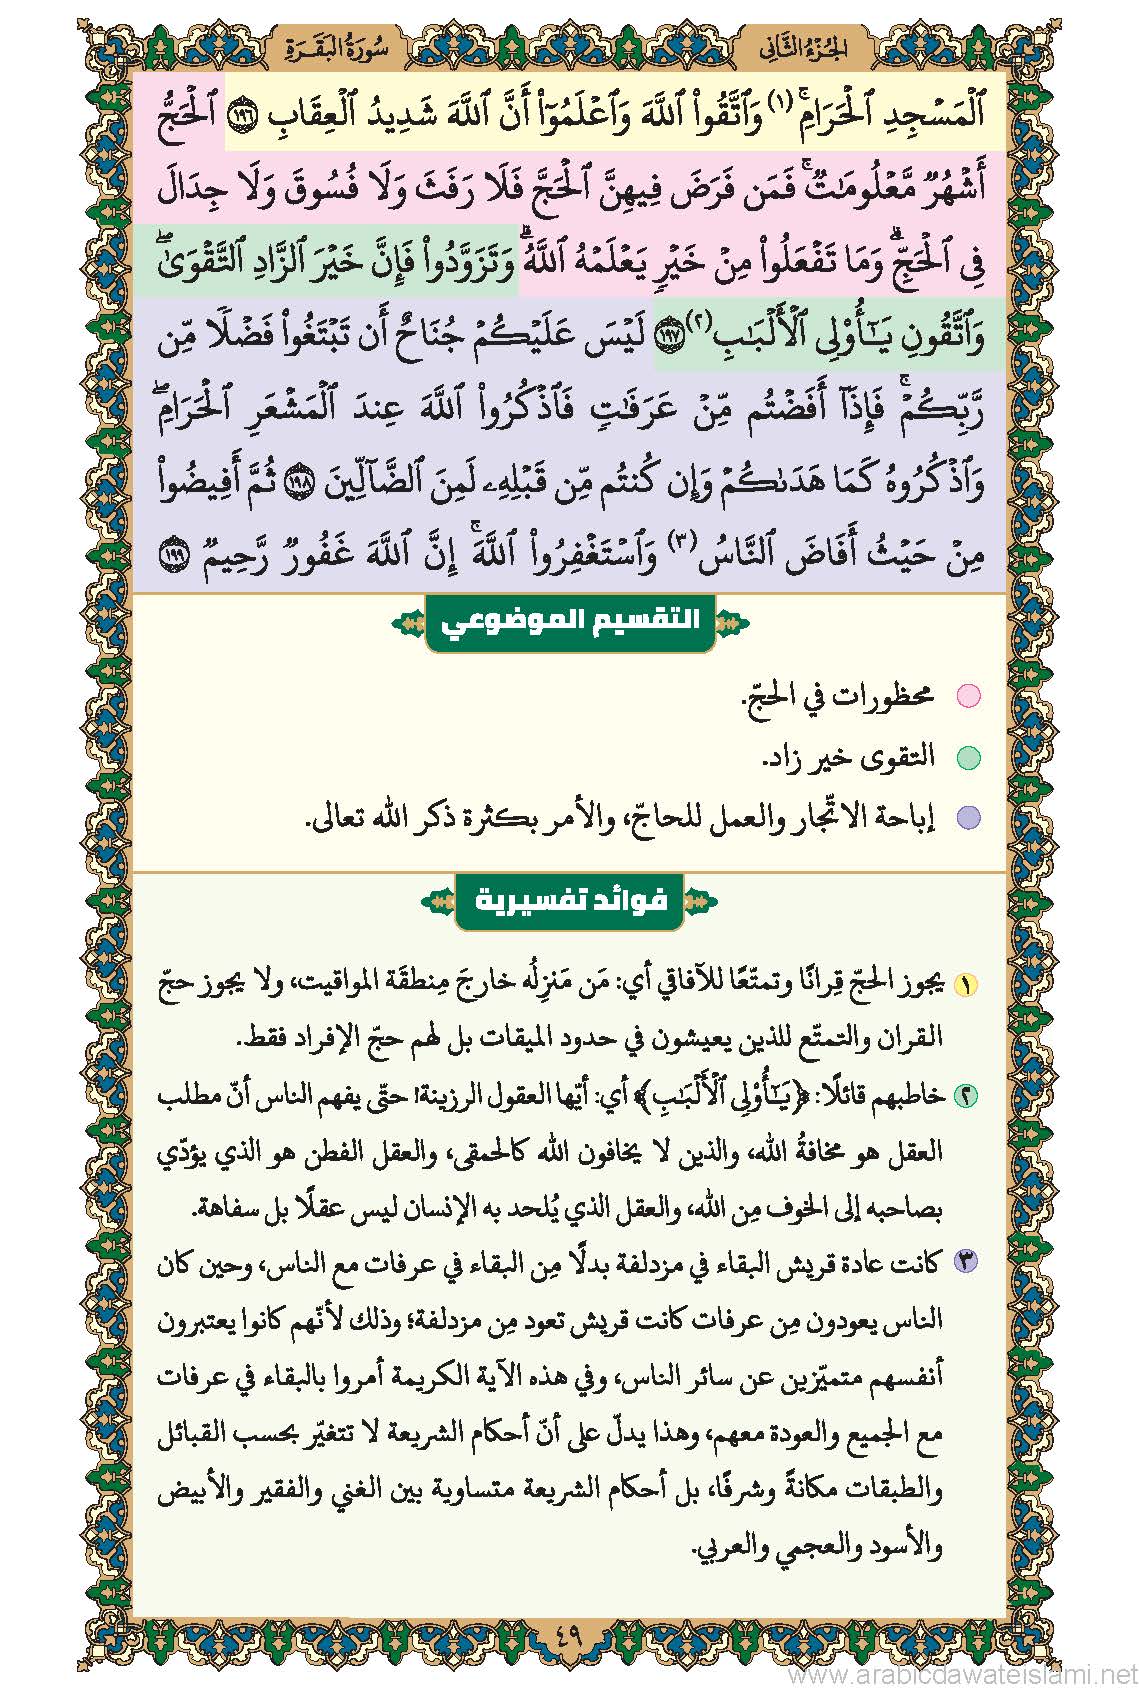 الجُزْءُ الثَّانِي
سُورَةُ البَقَرَةِ
ٱلْمَسْجِدِ ٱلْحَرَامِۚ (١) وَٱتَّقُوا۟ ٱللَّهَ وَٱعْلَمُوٓا۟ أَنَّ ٱللَّهَ شَدِيدُ ٱلْعِقَابِ ١٩٦ ٱلْحَجُّ
أَشْهُرٌ مَّعْلُومَٰتٌۚ فَمَن فَرَضَ فِيهِنَّ ٱلْحَجَّ فَلَا رَفَثَ وَلَا فُسُوقَ وَلَا جِدَالَ
فِى ٱلْحَجِّۗ وَمَا تَفْعَلُوا۟ مِنْ خَيْرٍ يَعْلَمْهُ ٱللَّهُۗ وَتَزَوَّدُوا۟ فَإِنَّ خَيْرَ ٱلزَّادِ ٱلتَّقْوَىٰۖ
وَٱتَّقُونِ يَٰٓأُو۟لِى ٱلْأَلْبَٰبِ (٢) ١٩٧ لَيْسَ عَلَيْكُمْ جُنَاحٌ أَن تَبْتَغُوا۟ فَضْلًا مِّن
رَّبِّكُمْۚ فَإِذَآ أَفَضْتُم مِّنْ عَرَفَٰتٍ فَٱذْكُرُوا۟ ٱللَّهَ عِندَ ٱلْمَشْعَرِ ٱلْحَرَامِۖ
وَٱذْكُرُوهُ كَمَا هَدَىٰكُمْ وَإِن كُنتُم مِّن قَبْلِهِۦ لَمِنَ ٱلضَّآلِّينَ ١٩٨ ثُمَّ أَفِيضُوا۟
مِنْ حَيْثُ أَفَاضَ ٱلنَّاسُ (٣) وَٱسْتَغْفِرُوا۟ ٱللَّهَۚ إِنَّ ٱللَّهَ غَفُورٌ رَّحِيمٌ ١٩٩
التقسيم الموضوعي
محظورات في الحجّ.
التقوى خير زاد.
إباحة الاتّجار والعمل للحاجّ، والأمر بكثرة ذكر الله تعالى.
فوائد تفسيرية
١ يجوز الحجّ قِرانًا وتمتّعًا للآفاقي أي: مَن مَنزِلُه خارجَ مِنطقَة المواقيت، ولا يجوز حجّ
القران والتمتّع للذين يعيشون في حدود الميقات بل لهم حجّ الإفراد فقط.
٢ خاطبهم قائلًا: ﴿يَٰٓأُو۟لِى ٱلْأَلْبَٰبِ﴾ أي: أيّها العقول الرزينة! حتّى يفهم الناس أنّ مطلب
العقل هو مخافةُ الله، والذين لا يخافون الله كالحمقى، والعقل الفطن هو الذي يؤدّي
بصاحبه إلى الخوف مِن الله، والعقل الذي يُلحد به الإنسان ليس عقلًا بل سفاهة.
٣ كانت عادة قريش البقاء في مزدلفة بدلًا مِن البقاء في عرفات مع الناس، وحين كان
الناس يعودون مِن عرفات كانت قريش تعود مِن مزدلفة؛ وذلك لأنّهم كانوا يعتبرون
أنفسهم متميّزين عن سائر الناس، وفي هذه الآية الكريمة أمروا بالبقاء في عرفات
مع الجميع والعودة معهم، وهذا يدلّ على أنّ أحكام الشريعة لا تتغيّر بحسب القبائل
والطبقات مكانةً وشرفًا، بل أحكام الشريعة متساوية بين الغني والفقير والأبيض
والأسود والعجمي والعربي.
٤٩
www.arabicdawateislami.net